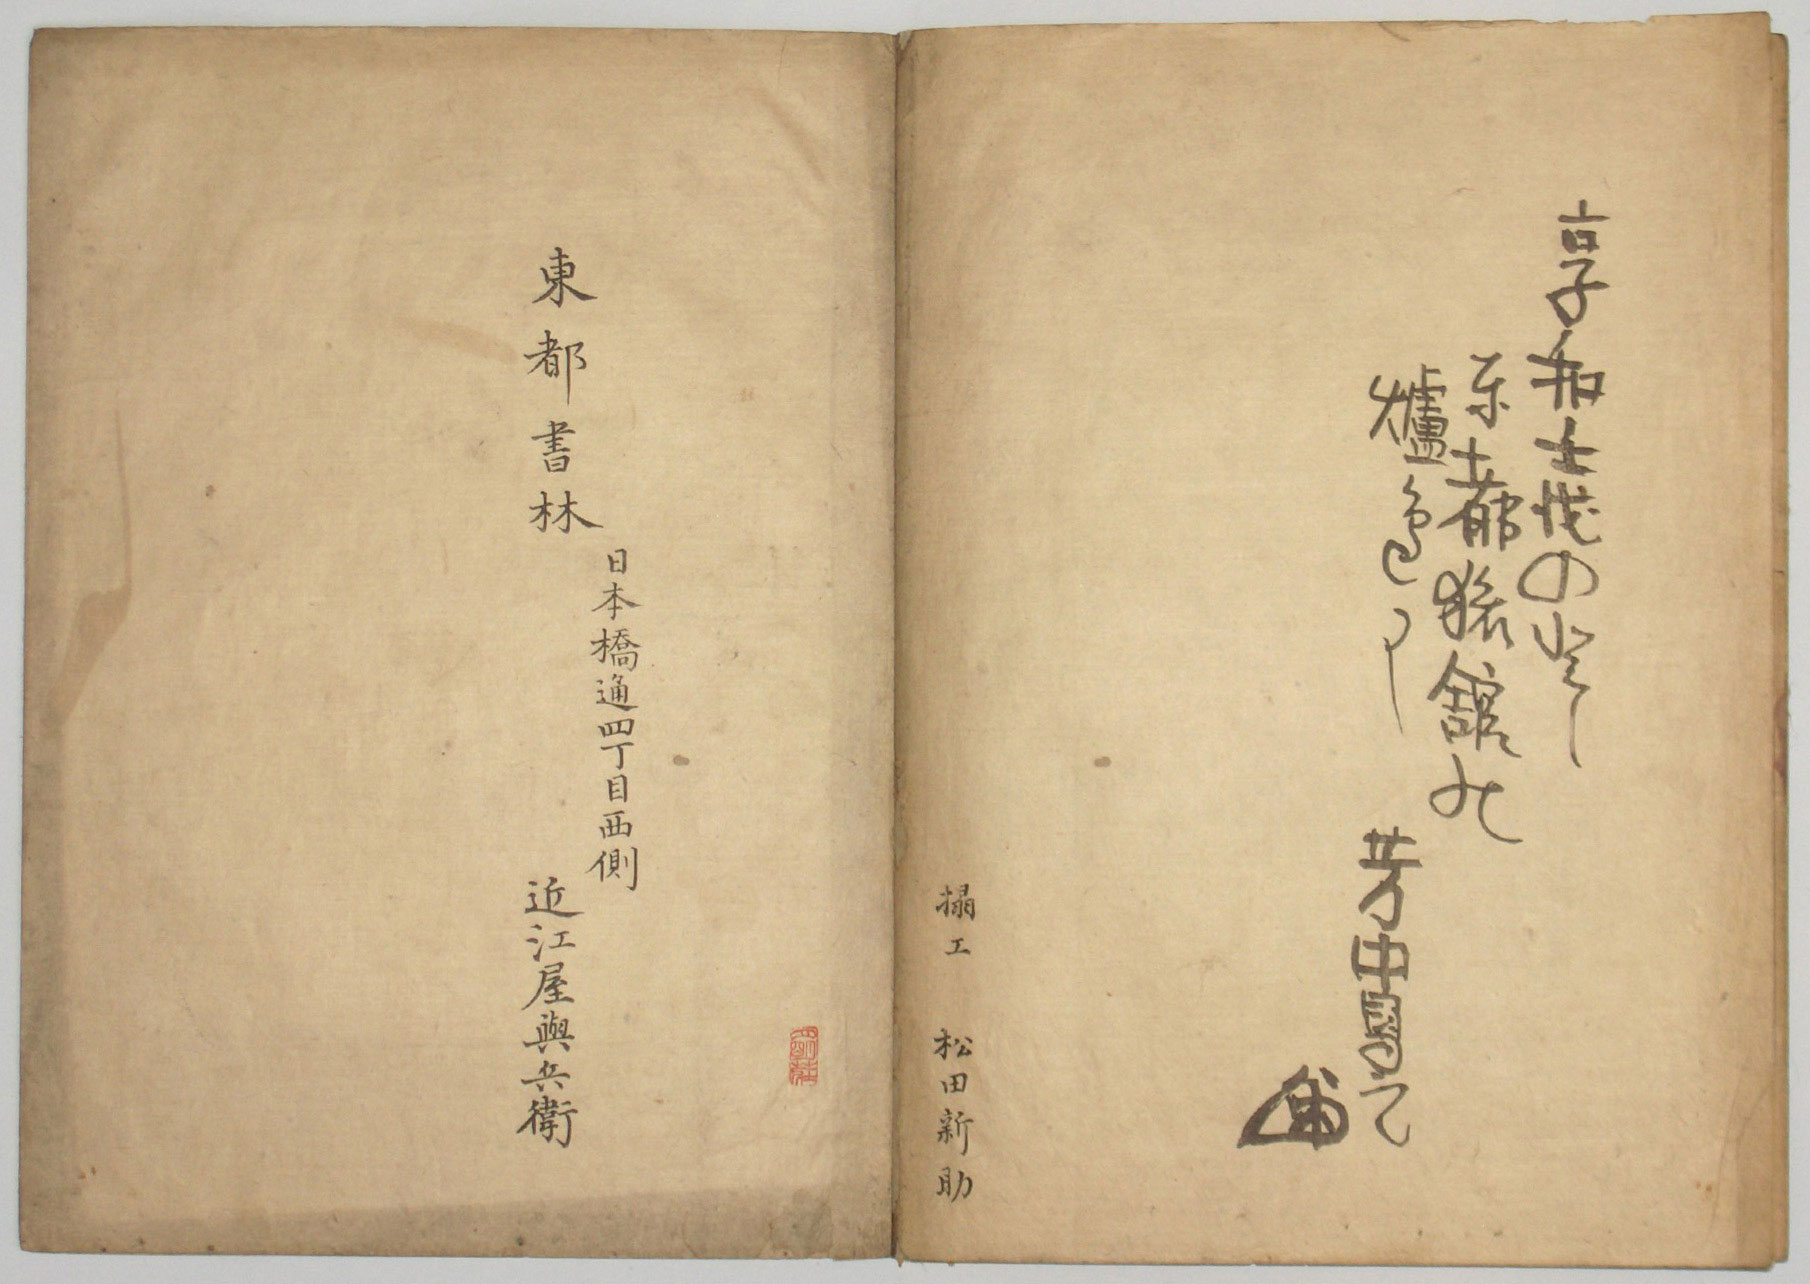 享和壬戌のとし
東都旅舘の
爐
芳中冩之
搨工 松田新助
東都書林
日本橋通四丁目西側
近江屋與兵衛